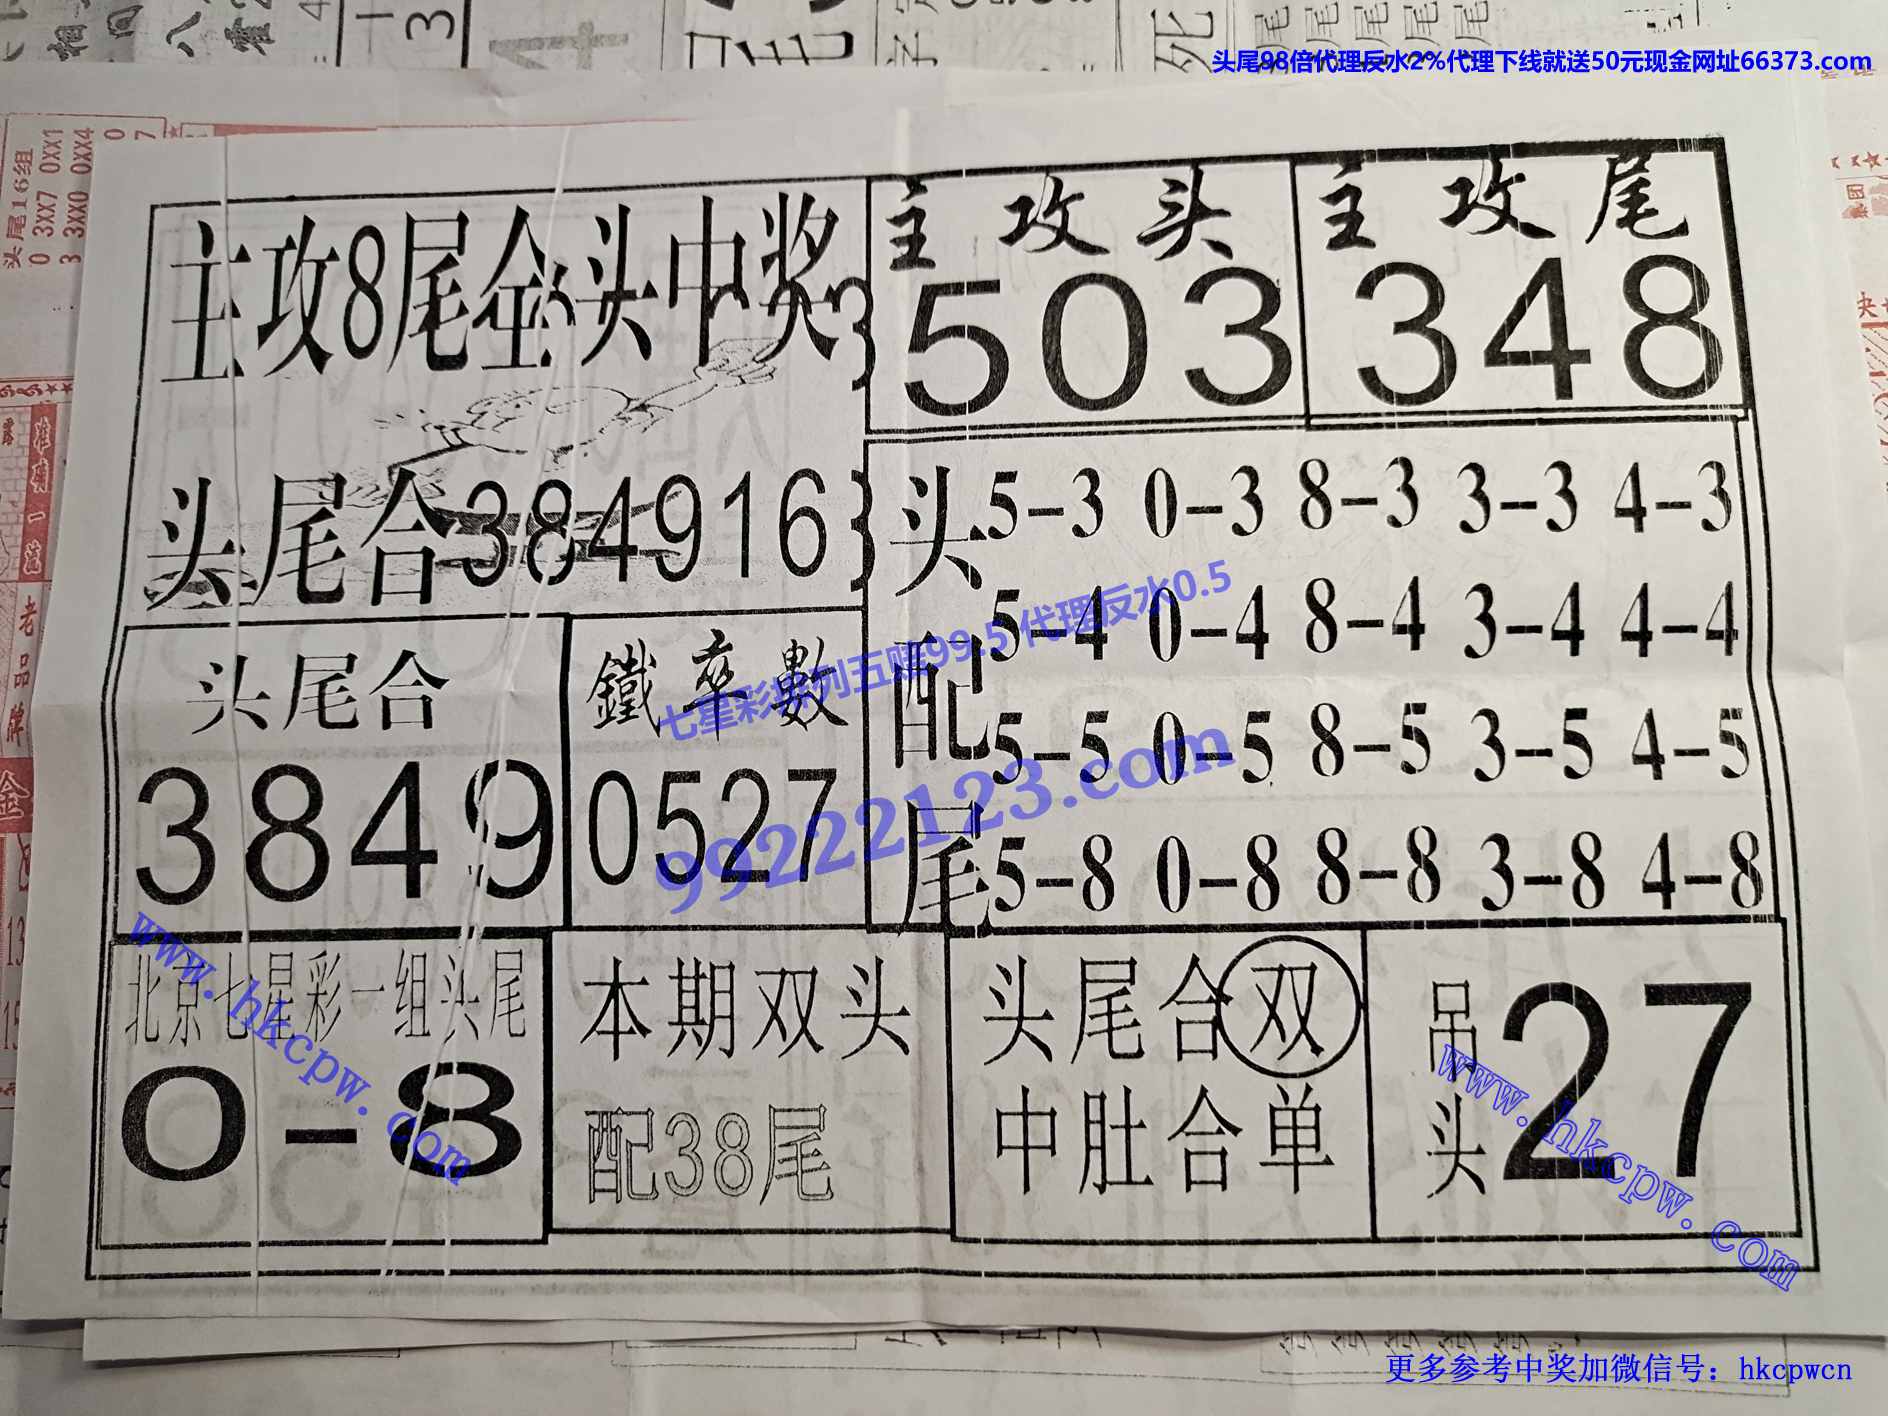 头尾98倍代理反水2%代理下线就送50元现金网址66373.com
头尾16组
0 3XX7 0XX1
3 3XX0 0XX4
主攻8尾全头中奖
主攻头
503
主攻尾
348
头尾合384916
头配尾
5-3 0-3 8-3 3-3 4-3
5-4 0-4 8-4 3-4 4-4
5-5 0-5 8-5 3-5 4-5
5-8 0-8 8-8 3-8 4-8
头尾合
3849
鐵率數
0527
七星彩排列五赔99.5 代理反水0.5
99222123.com
北京七星彩一组头尾
0-8
www.hkcpw.com
本期双头
配38尾
头尾合双
中肚合单
吊头
27
www.hkcpw.com
老品牌
更多参考中奖加微信号：hkcpwcn